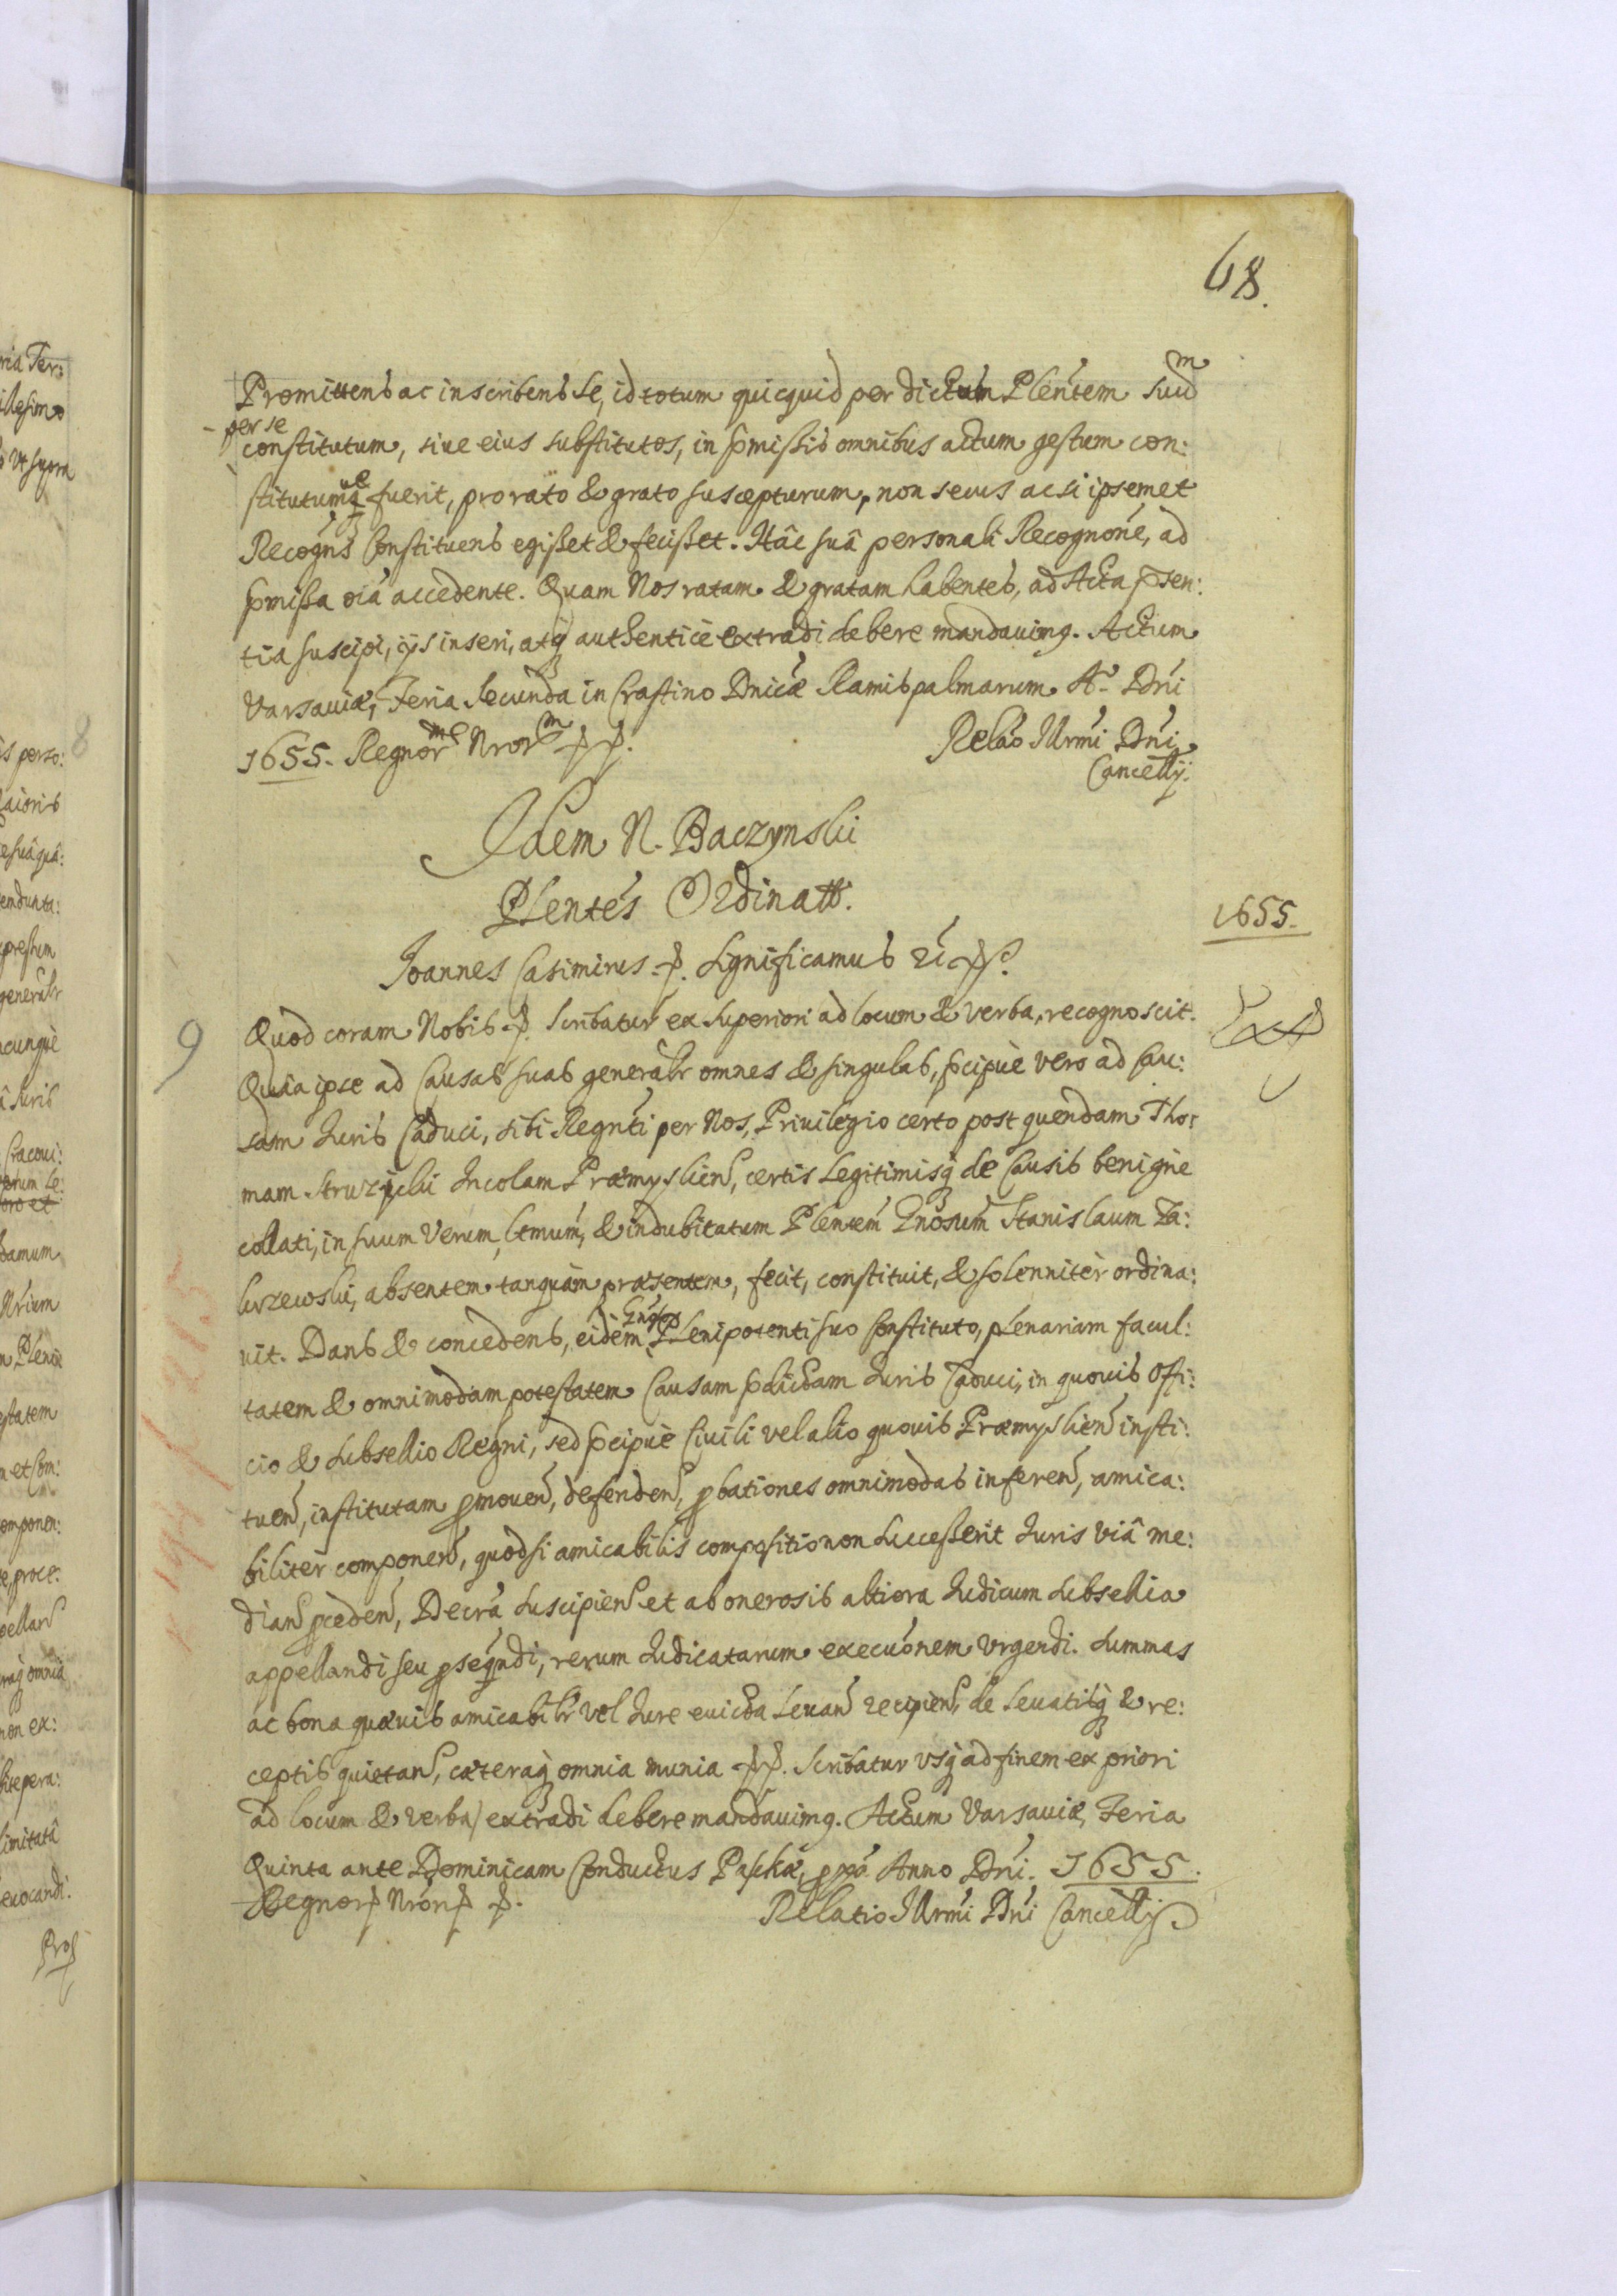 68.
Promittens ac inscribens se, id totum quicquid per dictum Plentem suum
per se
constitutum, siue eius substitutos, in pmissis omnibus actum gestum con:
stitutumue fuerit, pro rato & grato suscepturum, non secus ac si ipsemet
Recogns Constituens egisset & fecisset. Hâc suâ personali Recognone, ad
pmissa oia accedente. Quam Nos ratam & gratam habentes, ad Acta psen:
tia suscipi, ijs inseri, atq authenticè extradi debere mandauimq. Actum
Varsauiæ, Feria Secunda in Crastino Dnicæ Ramispalmarum Aº Dni
1655. Regnorum Nrorum
Relao Illrmi Dni
Cancellij.
Idem N. Baczynski
Plentes Ordinatt.
1655.
Joannes Casimirus. Significamus
Quod coram Nobis. Scribatur ex superiori ad locum & verba, recognoscit.
9
Quia ipse ad Causas suas generalr omnes & singulas, pcipuè vero ad Cau:
sam Iuris Caduci, sibi Regnti per Nos, Priuilegio certo post quendam Tho:
mam Struzycki Incolam Præmyslien, certis Legitimisq de Causis benigne
collati, in suum Verum, ltmum, & indubitatum Plentem Gnosum Stanislaum Za:
krzewski, absentem tanquàm præsentem, fecit, constituit, & solennitèr ordina:
uit. Dans & concedens, eidem Plenipotenti suo Constituto, plenariam facul:
tatem & omnimodam potestatem Causam pdictam Iuris Caduci, in quouis Offi:
cio & Subsellio Regni, sed pcipuè Ciuili vel alio quouis Præmyslien insti:
tuen, institutam pmouen, defenden, pbationes omnimodas inferen, amica:
biliter componen, quodsi amicabilis compositio non successerit Iuris viâ me:
dian pceden, Decra suscipien et ab onerosis altiora Iudicum Subsellia
appellandi seu psequndi, rerum Iudicatarum execuonem vrgendi. Summas
ac bona quæuis amicabilr vel Iure euicta leuan recipien, de leuatisq & re:
ceptis quietan, cæteraq omnia munia. Scribatur vsq ad finem ex priori
ad locum & verba/ extradi debere mandauimq. Actum Varsauiæ, Feria
Quinta ante Dominicam Conductus Paschæ, pxa Anno Dni. 1655.
Regnor Nror
Relatio Illrmi Dni Cancellij